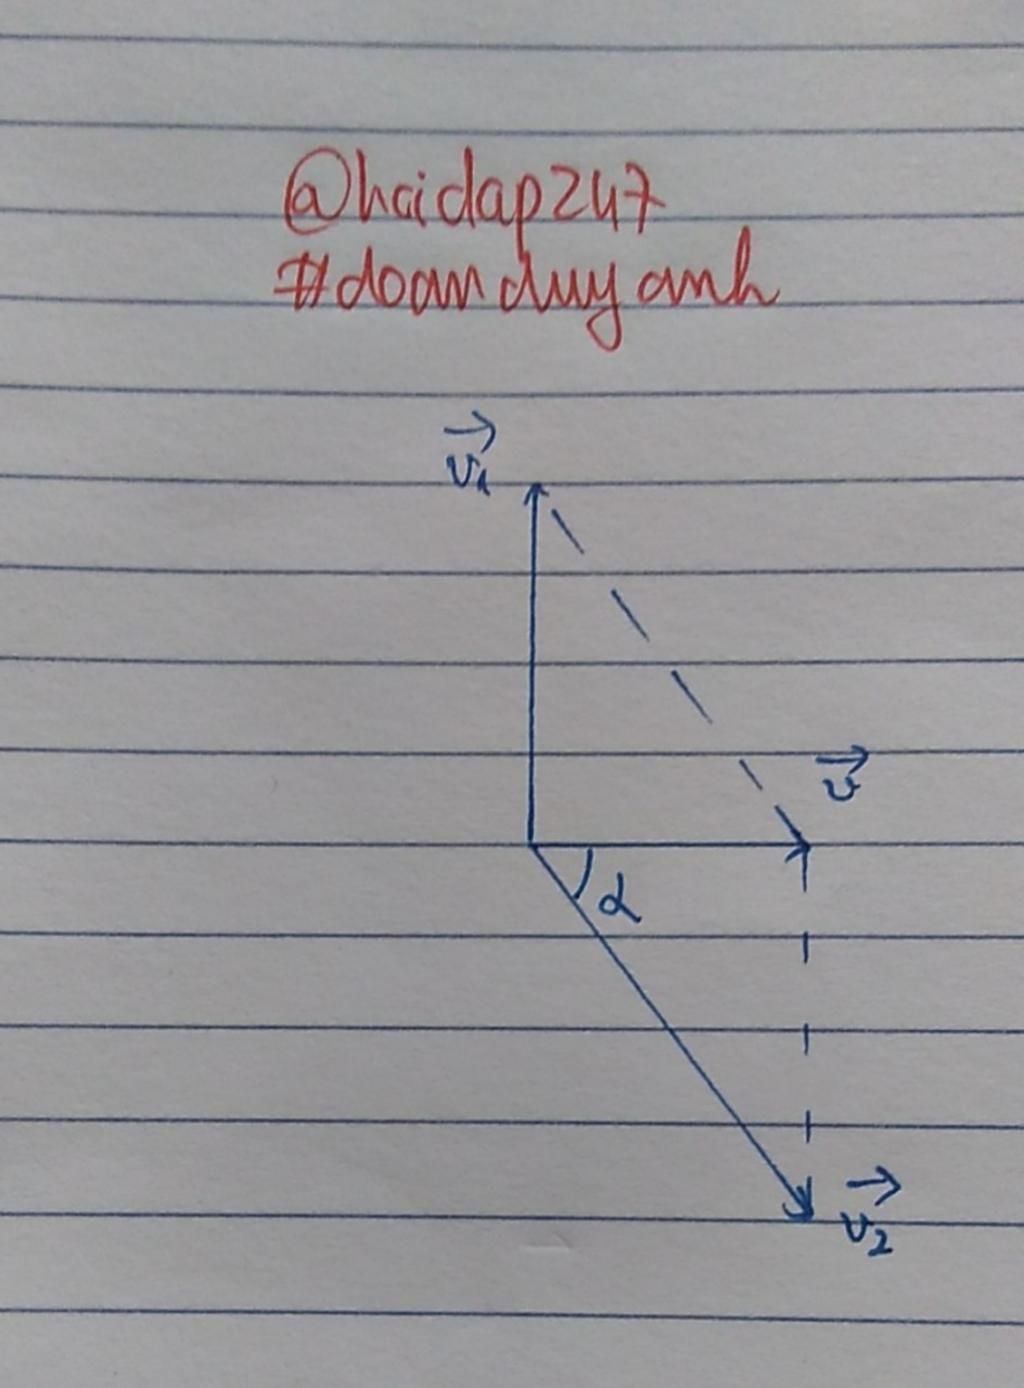 @hoidap247
#doanduyanh
v₁
v
α
v₂